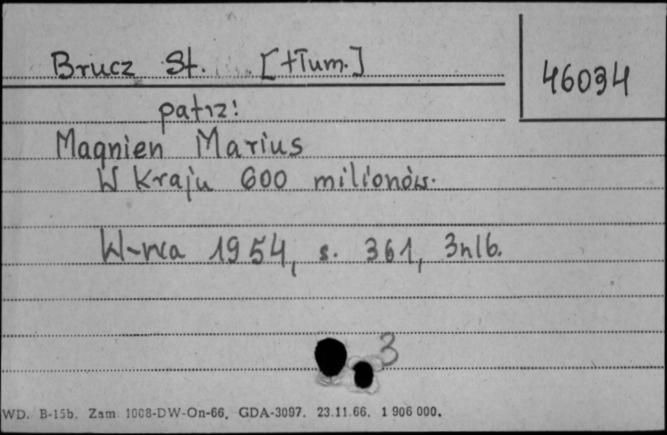 Brucz St. [tłum.]
46034
patrz:
Magnien Marius
W kraju 600 milionów.
W-wa 1954, s. 361, 3nlb.
3
WD. B-15b. Zam. 1008-DW-On-66. GDA-3097. 23.11.66. 1 906 000.